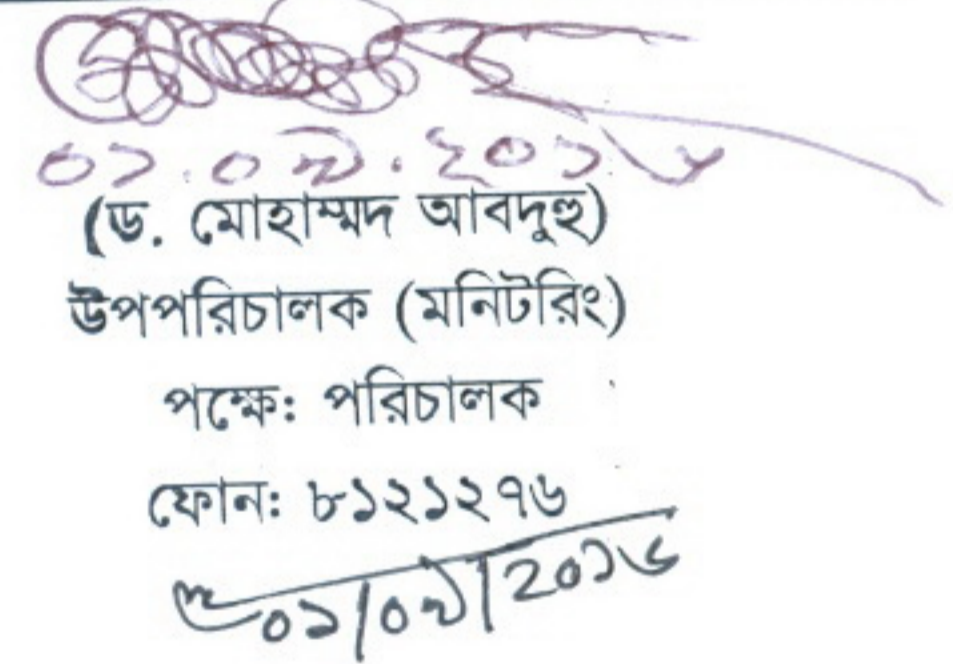 ০১.০৯.২০১৬
(ড. মোহাম্মদ আবদুহু)
উপপরিচালক (মনিটরিং)
পক্ষে: পরিচালক
ফোন: ৮১২১২৭৬
০১/০৯/২০১৬